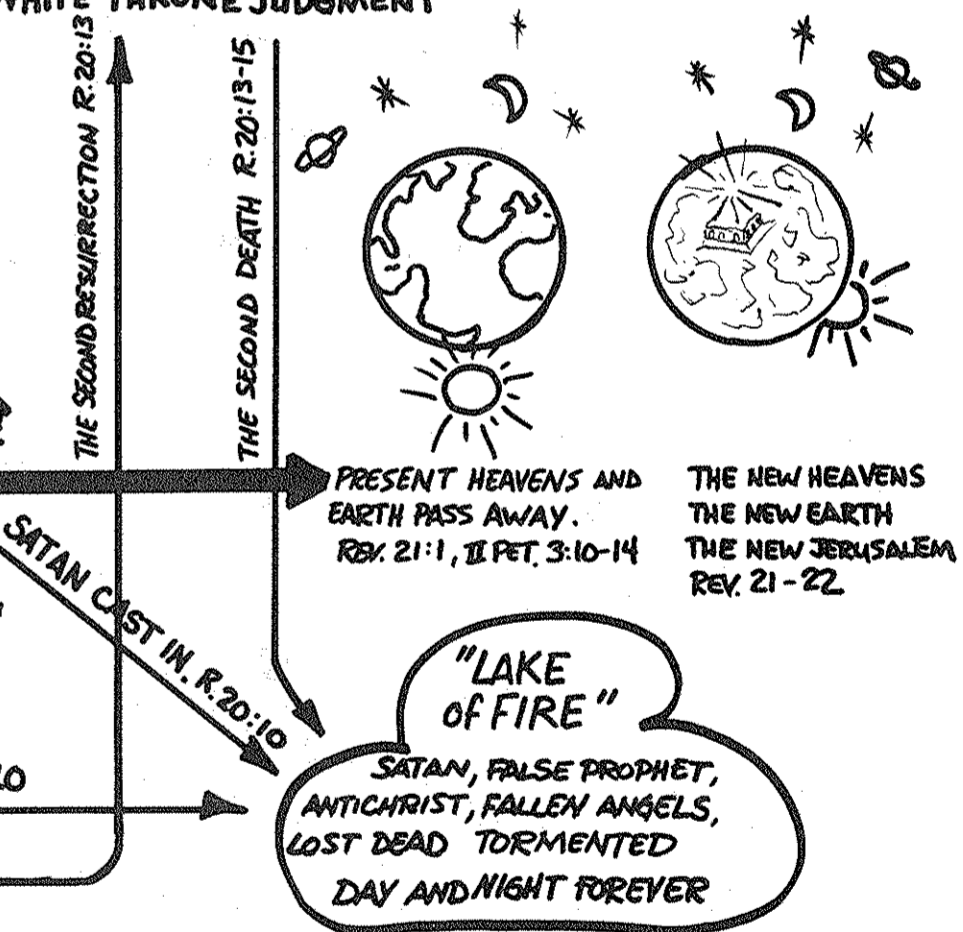 WHITE THRONE JUDGMENT
THE SECOND RESURRECTION R.20:13
THE SECOND DEATH R.20:13-15
PRESENT HEAVENS AND
EARTH PASS AWAY.
REV. 21:1, II PET. 3:10-14
THE NEW HEAVENS
THE NEW EARTH
THE NEW JERUSALEM
REV. 21-22
SATAN CAST IN. R.20:10
"LAKE
of FIRE"
SATAN, FALSE PROPHET,
ANTICHRIST, FALLEN ANGELS,
LOST DEAD TORMENTED
DAY AND NIGHT FOREVER